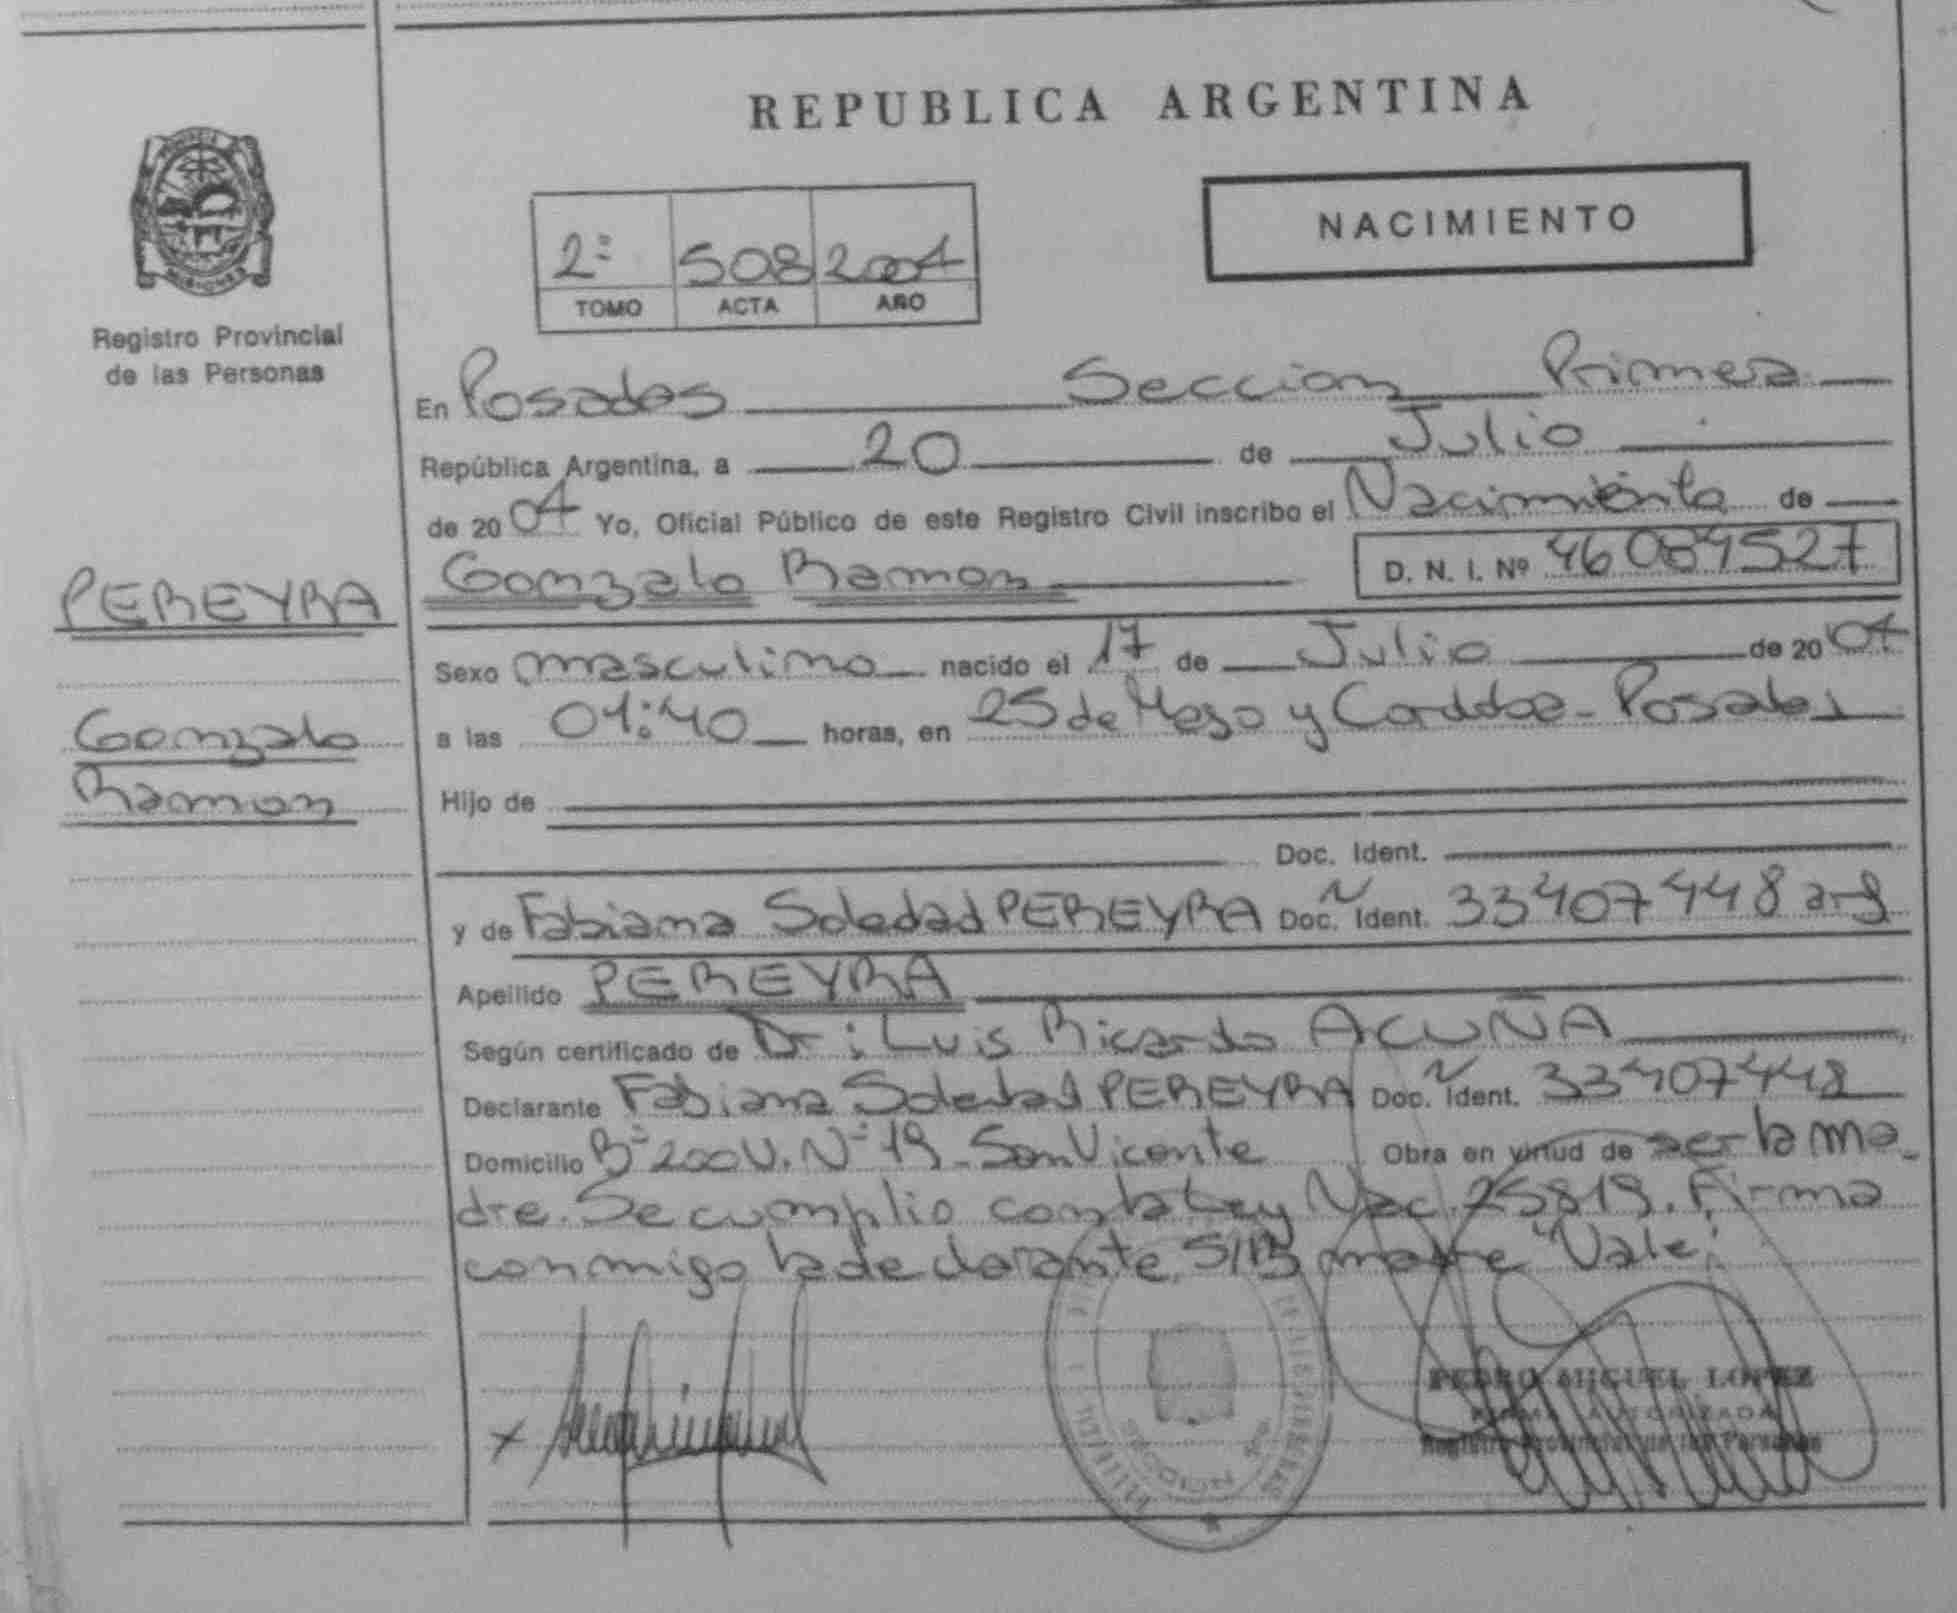 REPUBLICA ARGENTINA
NACIMIENTO
2º 508 2004
TOMO ACTA AÑO
Registro Provincial
de las Personas
En Posadas Seccion Primera
República Argentina, a 20 de Julio
de 2004 Yo, Oficial Público de este Registro Civil inscribo el Nacimiento de
Gonzalo Ramon D. N. I. Nº 46084527
PEREYRA
Gonzalo
Ramon
Sexo masculino nacido el 17 de Julio de 2004
a las 01:40 horas, en 25 de Mayo y Cordoba - Posadas
Hijo de
Doc. Ident.
y de Fabiana Soledad PEREYRA Doc. N Ident. 33407448 arg
Apellido PEREYRA
Según certificado de Dr: Luis Ricardo ACUÑA
Declarante Fabiana Soledad PEREYRA Doc. N Ident. 33407448
Domicilio Bº 200 V. Nº 19 - San Vicente Obra en virtud de ser la ma-
dre. Se cumplio con la Ley Nac. 25819. Firma
conmigo la declarante. S/B madre "Vale".
PEDRO MIGUEL LOPEZ
FIRMA AUTORIZADA
Registro Provincial de las Personas